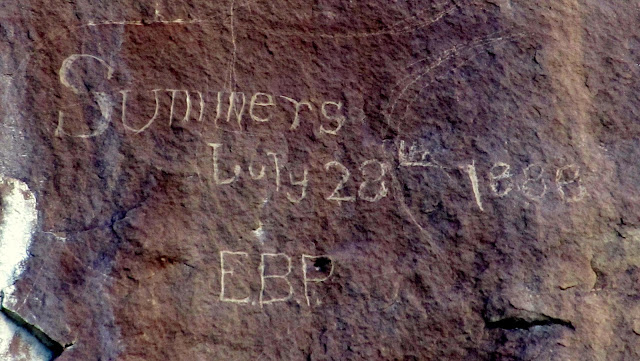 Summers
Luly 28th 1888
EBP